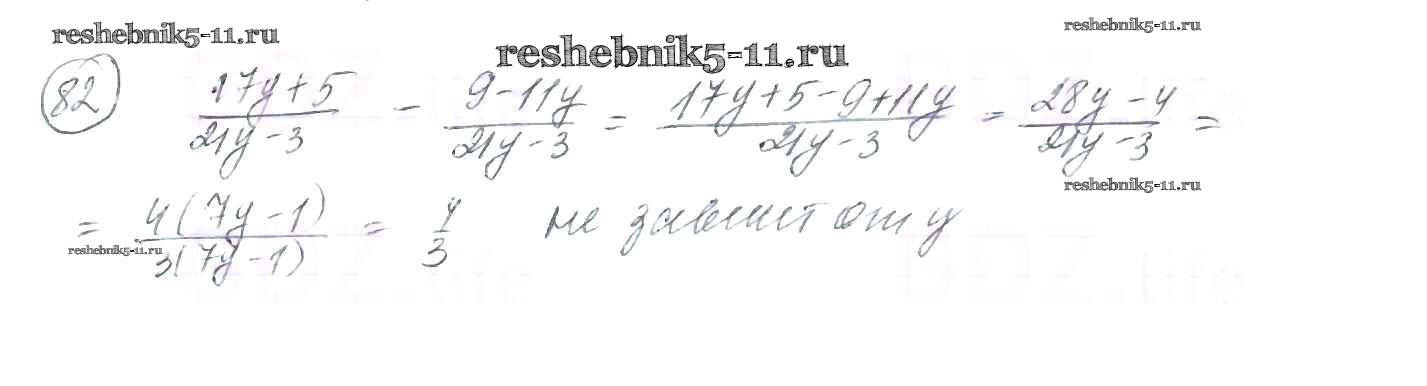 reshebnik5-11.ru
reshebnik5-11.ru
reshebnik5-11.ru
82 (17y+5)/(21y-3) - (9-11y)/(21y-3) = (17y+5-9+11y)/(21y-3) = (28y-4)/(21y-3) =
reshebnik5-11.ru
= 4(7y-1)/3(7y-1) = 4/3 не зависит от y
reshebnik5-11.ru